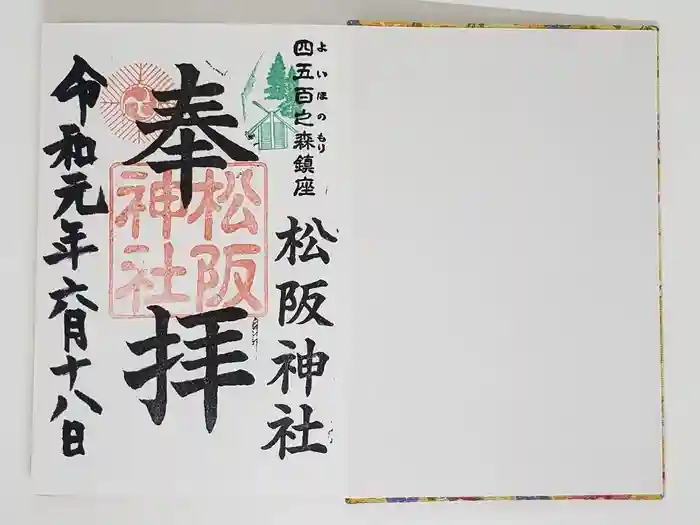 四五百之森鎮座
よいほのもり
松阪神社
奉拝
松阪神社
令和元年六月十八日